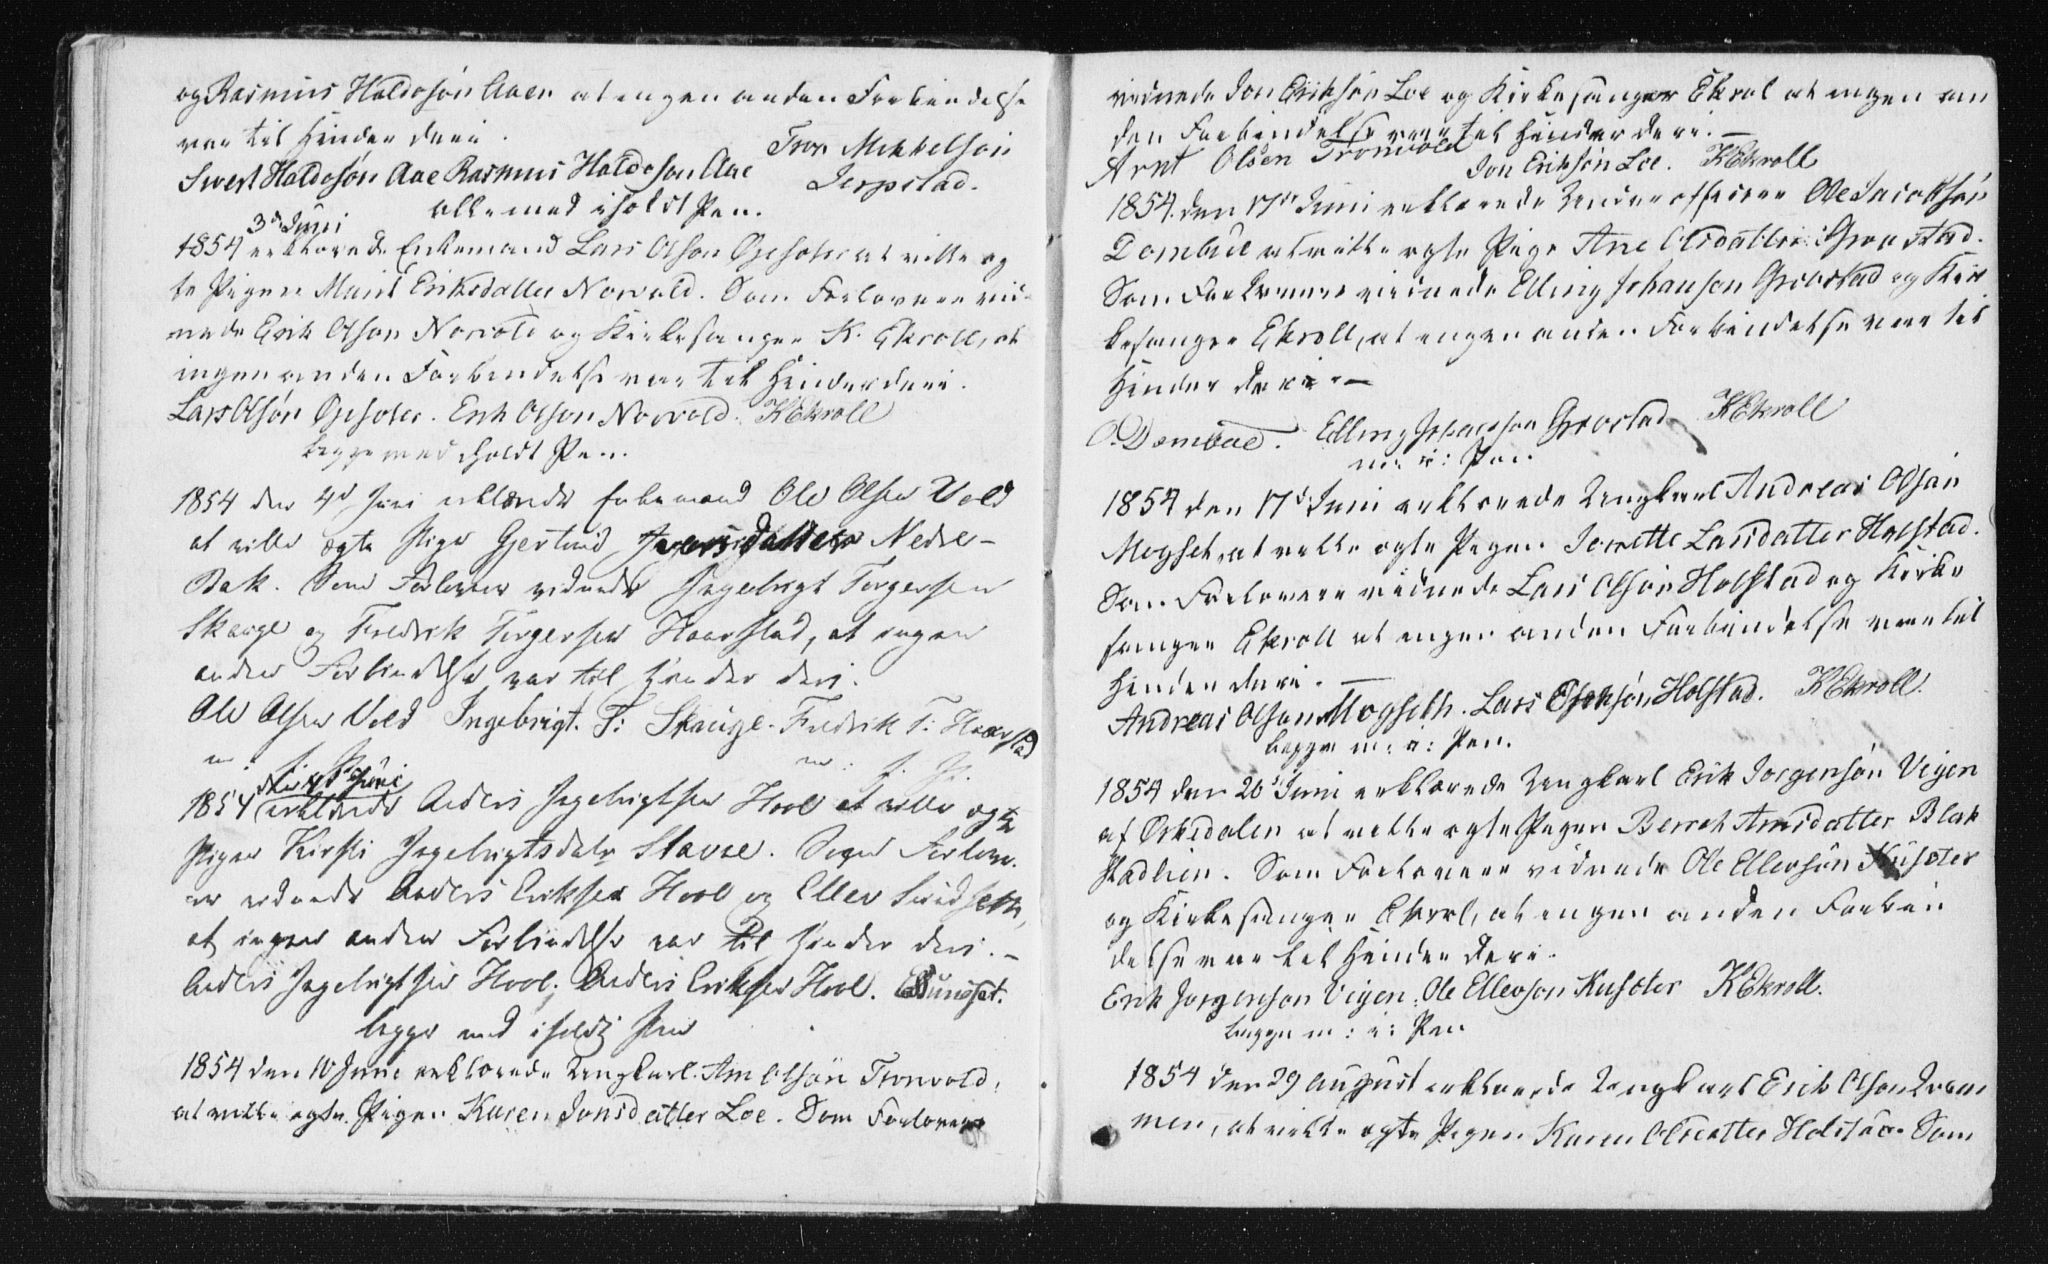 og Rasmus Haldosön Aaen at engen anden Forbindelse
var til Hinder deri.
Tron Mekkelson
Sivert Haldosön Aae Rasmus Haldoson Aae
Jerpstad.
alle med iholdt Pen.
3d Juni
1854 erklorede Enkemand Lars Olson Opsoter at ville eg
te Pigen Marit Eriksdatter Norvold. Som Forlovere vid
nede Erik Olson Norvold og Kirkesanger K. Ekroll, at
ingen anden Forbindelse var tel Hinder deri.
Lars Olsön Opsoter. Erik Olson Norvold. KEkroll
begge med iholdt Pen.
1854 den 4d Juni erklærede Enkemand Ole Olsen Vold
at ville ægte Pige Gjertrud Nedre-
Bak. Som Forlovere vidnede Ingebrigt Torgersen
Skauge og Fredrik Torgersen Haarstad, at ingen
anden Forbindelse var til Hinder deri.
Ole Olsen Vold Ingebrigt. T: Skauge. Fredrik T: Haarstad
den 4d Juni
1854 erklærede Anders Ingebrigtsen Hool at ville ægte
Pigen Kirsti Ingebrigtsdatr Stavse. Som Forlov.
er vidnede Anders Eriksen Hool og Ellev Sundseth,
at ingen anden Forbindelse var til Hinder deri.-
Anders Ingebrigtsen Hool; Anders Eriksen Hool. ESundset.
begge med iholdt Pen
1854 den 10 Juni erklorede Ungkarl Arn Olsön Tronvold,
at ville egte Pigen Karen Jonsdatter Loe. Som Forlovere
vidnede Jon Eriksön Loe og Kirkesanger Ekrol at engen an
den Forbindelse var tel Hinder deri.-
Arnt Olsen Tronvold Jon Eriksön Loe. KEkroll
1854. den 17de Juni erklorede Underofficeer Ole Jacobsön
Dombue at ville egte Pige Ane Olsdatter Grovstad.
Som Forlovere vidnede Elling Johanson Grovstad og Kir
kesanger Ekroll, at engen anden Forbindelse var tel
Hinder deri.-
O. Dombue. Elling Johanson Grovstad KEkroll
m: i: Pen.
1854 den 17d Juni erklorede Ungkarl Andreas Olsön
Mogset, at ville egte Pigen Jonette Larsdatter Holstad.
Som Forlovere vidnede Lars Olsön Holstad og Kirke
sanger Ekroll at engen anden Forbindelse var tel
Hinder deri.-
Andreas Olson Mogseth. Lars Holstad. KEkroll.
begge m: i: Pen.
1854 den 26d Juni erklorede Ungkarl Erik Jorgensön Vigen
af Orkedalen at ville egte Pigen Berret Arnsdatter Blok
stadlien. Som Forlovere vidnede Ole Ellevsön Kusoter
og Kirkesanger Ekrol, at engen anden Forbin
delse var tel Hinder deri.
Erik Jorgenson Vigen. Ole Ellevson Kusoter KEkroll.
begge m: i: Pen
1854 den 29 august erklorede Ungkarl Erik Olson Qvam
men, at ville egte Pigen Karen Olsdatter Holstad. Som